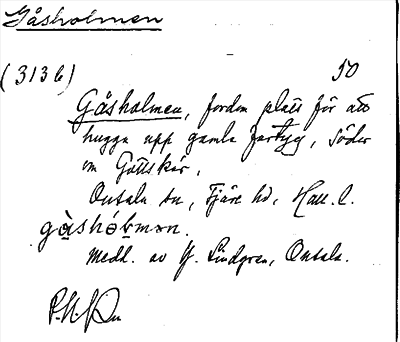 Gåsholmen
(313b) 50
Gåsholmen, fordom plats för att
hugga upp gamla fartyg, söder
om Gottskär,
Onsala sn, Fjäre hd, Hall. l.
gåshòlmən.
Medd. av Hj. Lindgren, Onsala.